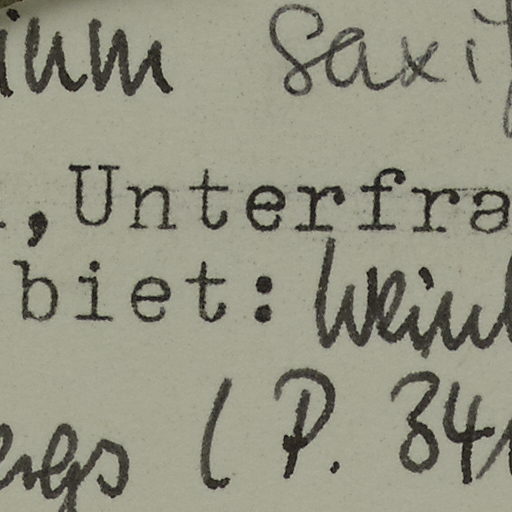 ium saxif
,Unterfra
biet: Wein
ergs (P. 34